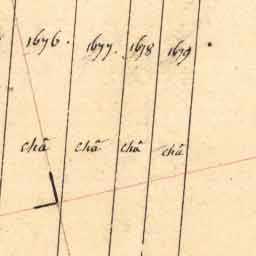 1676. 1677. 1678 1679
châ châ châ châ